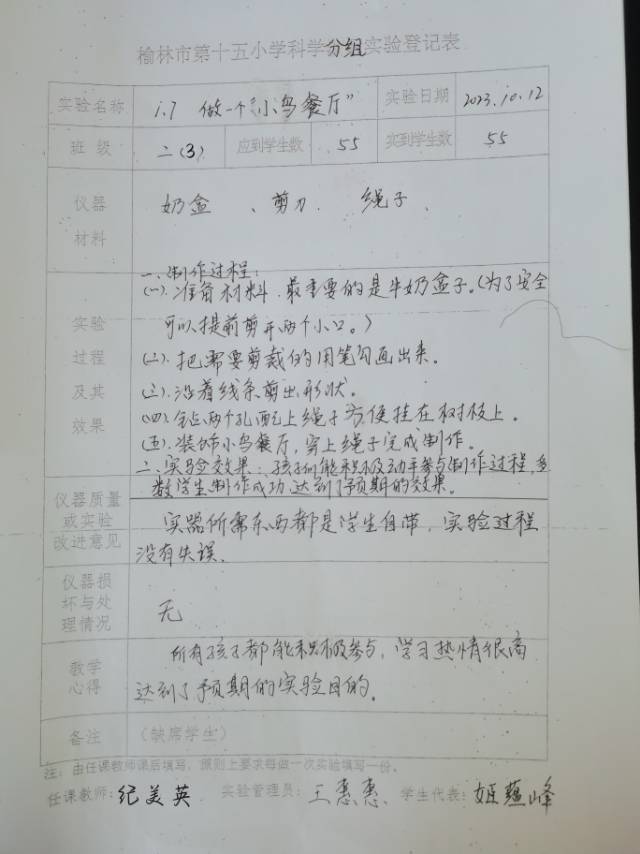 榆林市第十五小学科学分组实验登记表
实验名称 1.7 做一个“小鸟餐厅” 实验日期 2023.10.12
班 级 二(3) 应到学生数 55 实到学生数 55
仪器材料 奶盒 、剪刀. 绳子.
实验过程及其效果
一.制作过程:
(一).准备材料.最重要的是牛奶盒子。(为了安全
可以提前剪开两个小口。)
(二).把需要剪裁的用笔勾画出来。
(三).沿着线条剪出形状。
(四).钻两个孔配上绳子方便挂在树枝上。
(五).装饰小鸟餐厅,穿上绳子完成制作。
二.实验效果:孩子们能积极动手参与制作过程,多
数学生制作成功达到了预期的效果。
仪器质量或实验改进意见
实器所需东西都是学生自带,实验过程
没有失误.
仪器损坏与处理情况 无
教学心得
所有孩子都能积极参与,学习热情很高
达到了预期的实验目的。
备注 (缺席学生)
注:由任课教师课后填写,原则上要求每做一次实验填写一份。
任课教师:纪美英 实验管理员:王惠惠. 学生代表:姬蕴峰